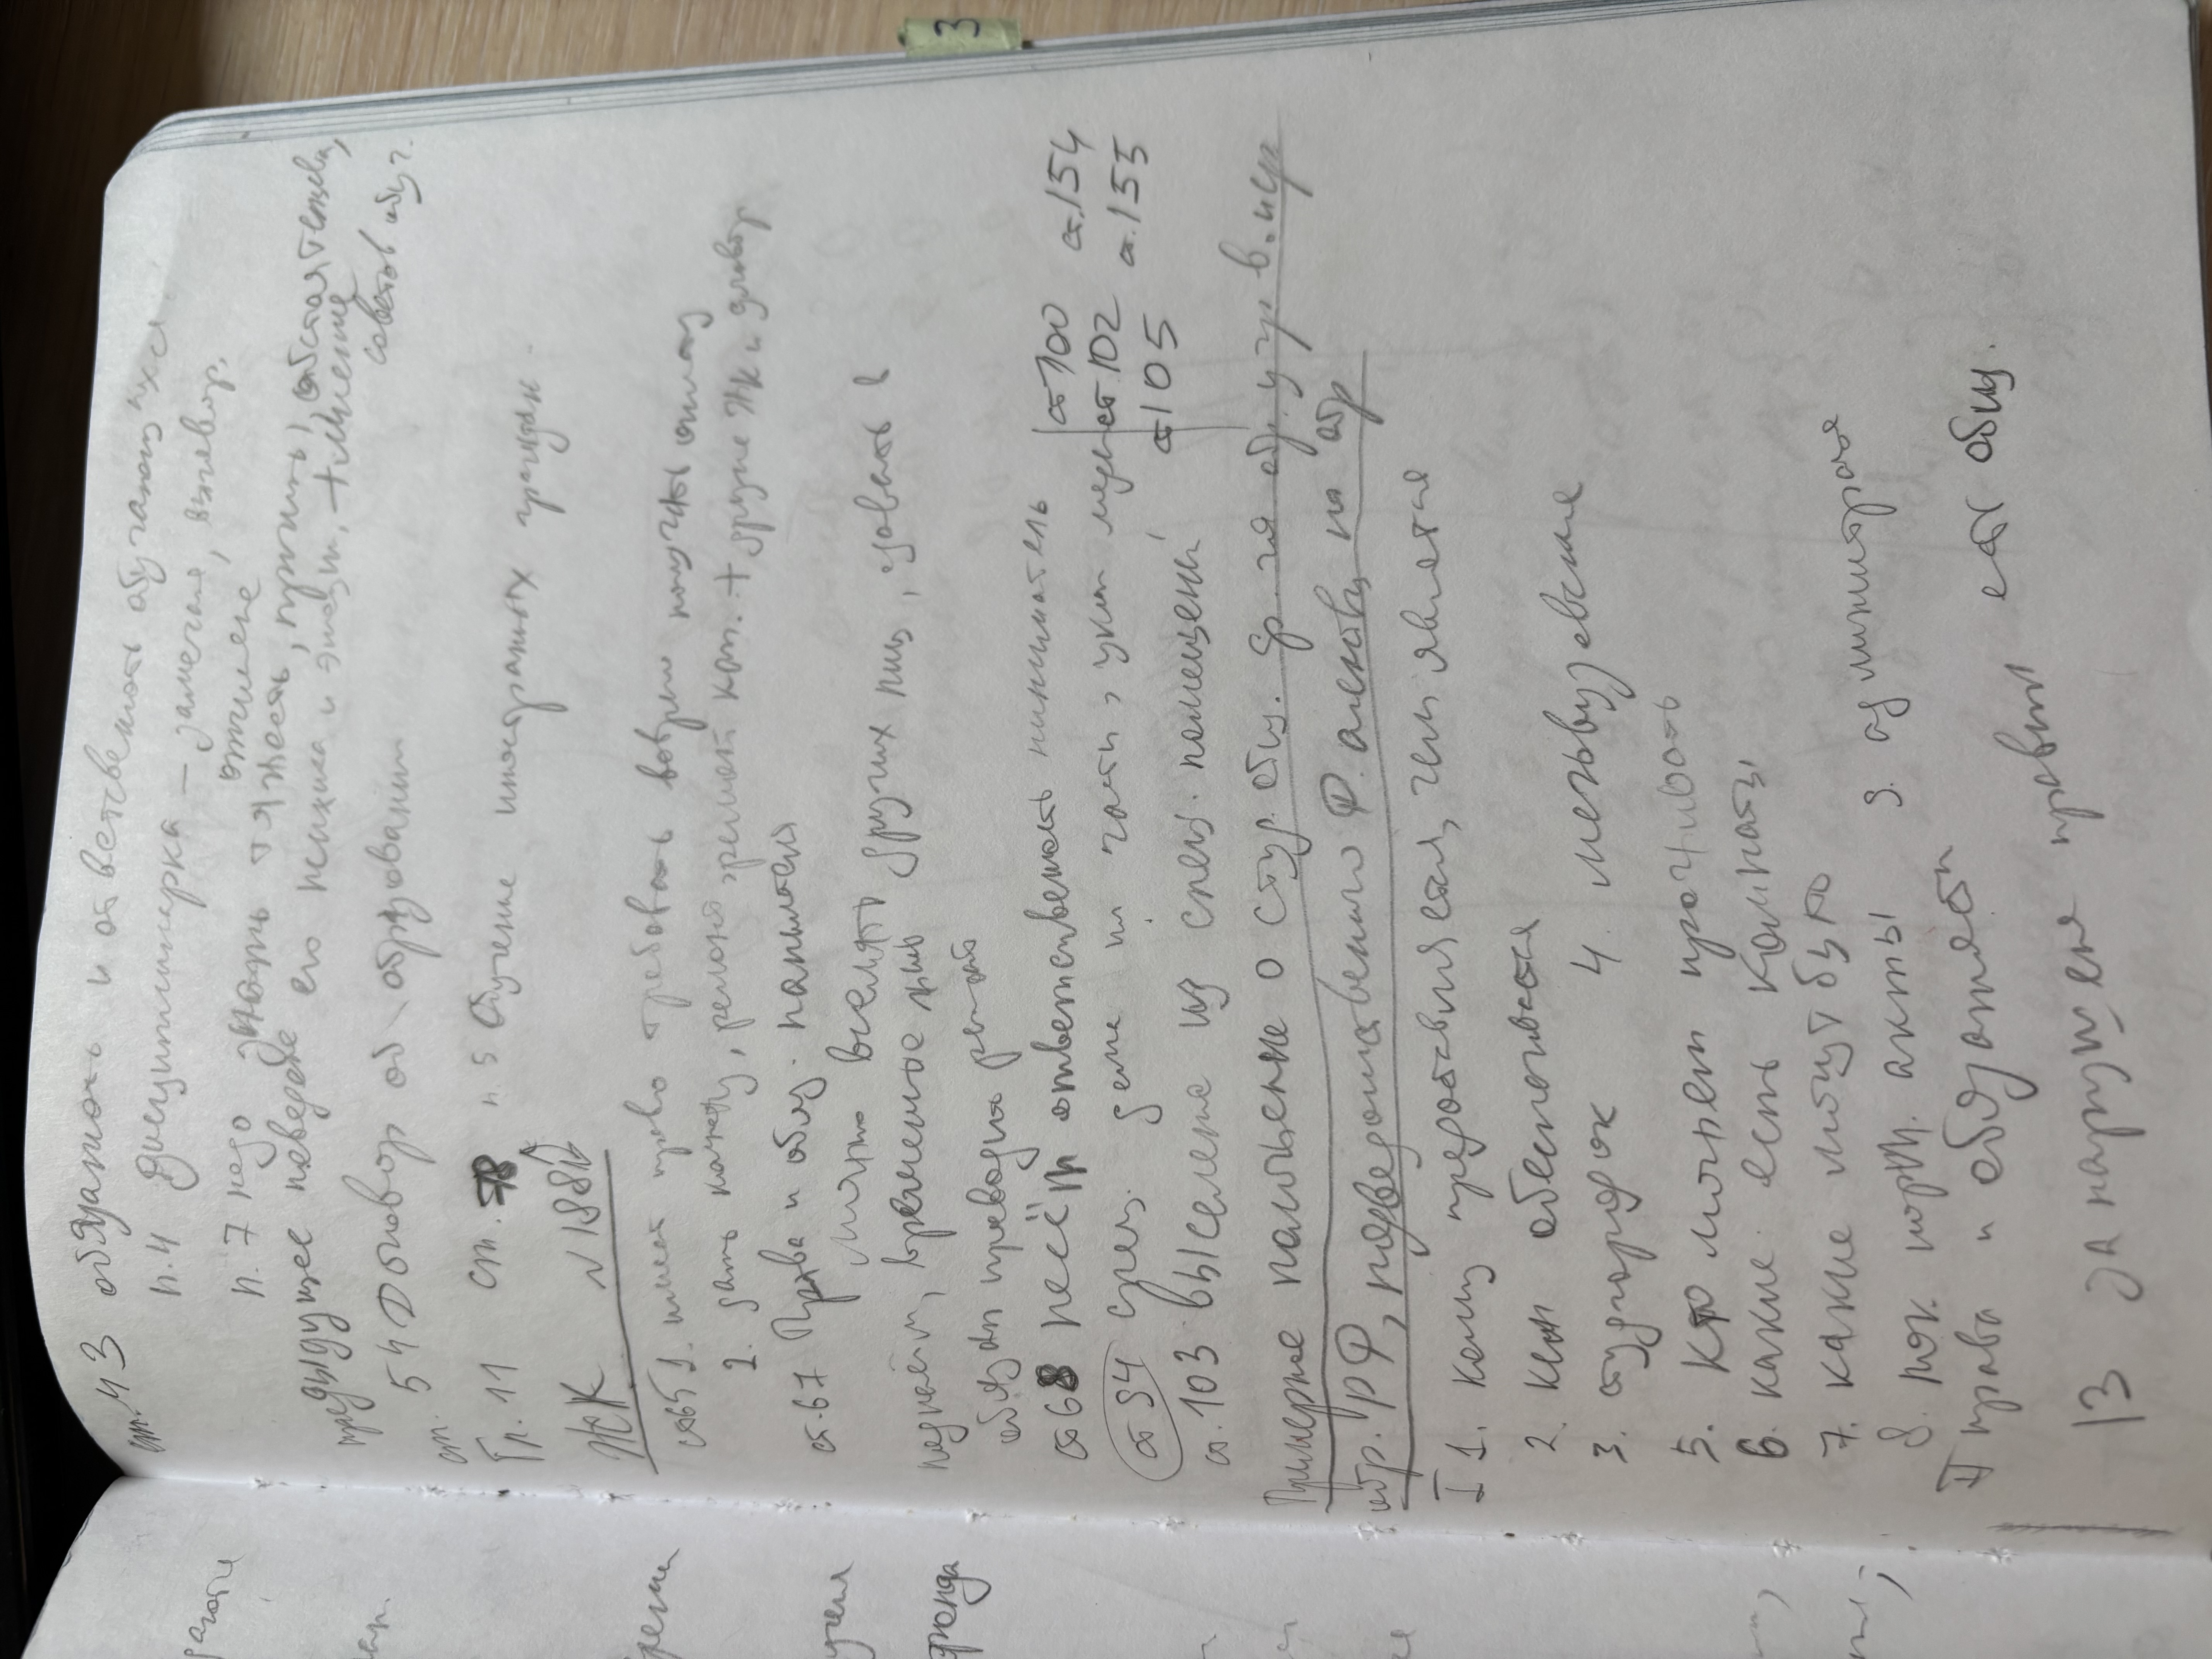 ст. 43 обязаность и ответственность обучающихся.
п.4 дисциплинарка – замечание, выговор,
отчисление
п. 7 надо знать тяжесть, причины, обстоятельсва,
предыдущее поведене его психика и эмоцт. + мнение
советов обуч.
ст. 54 Договор об образовании
Гл. 11 ст. 78 п. 5 Обучение иностранных граждан.
ЖК N 188
ст65 1. имеет право требовать воврем получать оплату
2. дать комнату, ремонт, ремонт кап. + другие ЖК и договор
ст.67 Права и обяз. нанимателя
Можно вселять других лиц, сдавать в
поднаём, временные
обязан проводить ремонт
ст68 несёт ответственность наниматель
ст 94 спец. дома или части,
ст100 ст.154
ст.102 ст.155
ст105
ст.103 выселене из спец. помещений
Примерное положение о студ. общ. обр. учр в. 
обр. РФ, подведомственного Ф. агенству по обр
I 1. кому предоставляется, чем является
2. кем обеспечивается
3. студгородок 4. межвузовские
5. кто может проживать
6. какие есть комнаты
7. какие могут быть
8. лок. норм. акты 9. администрация
II права и обязаности
13 за нарушене правил общ.